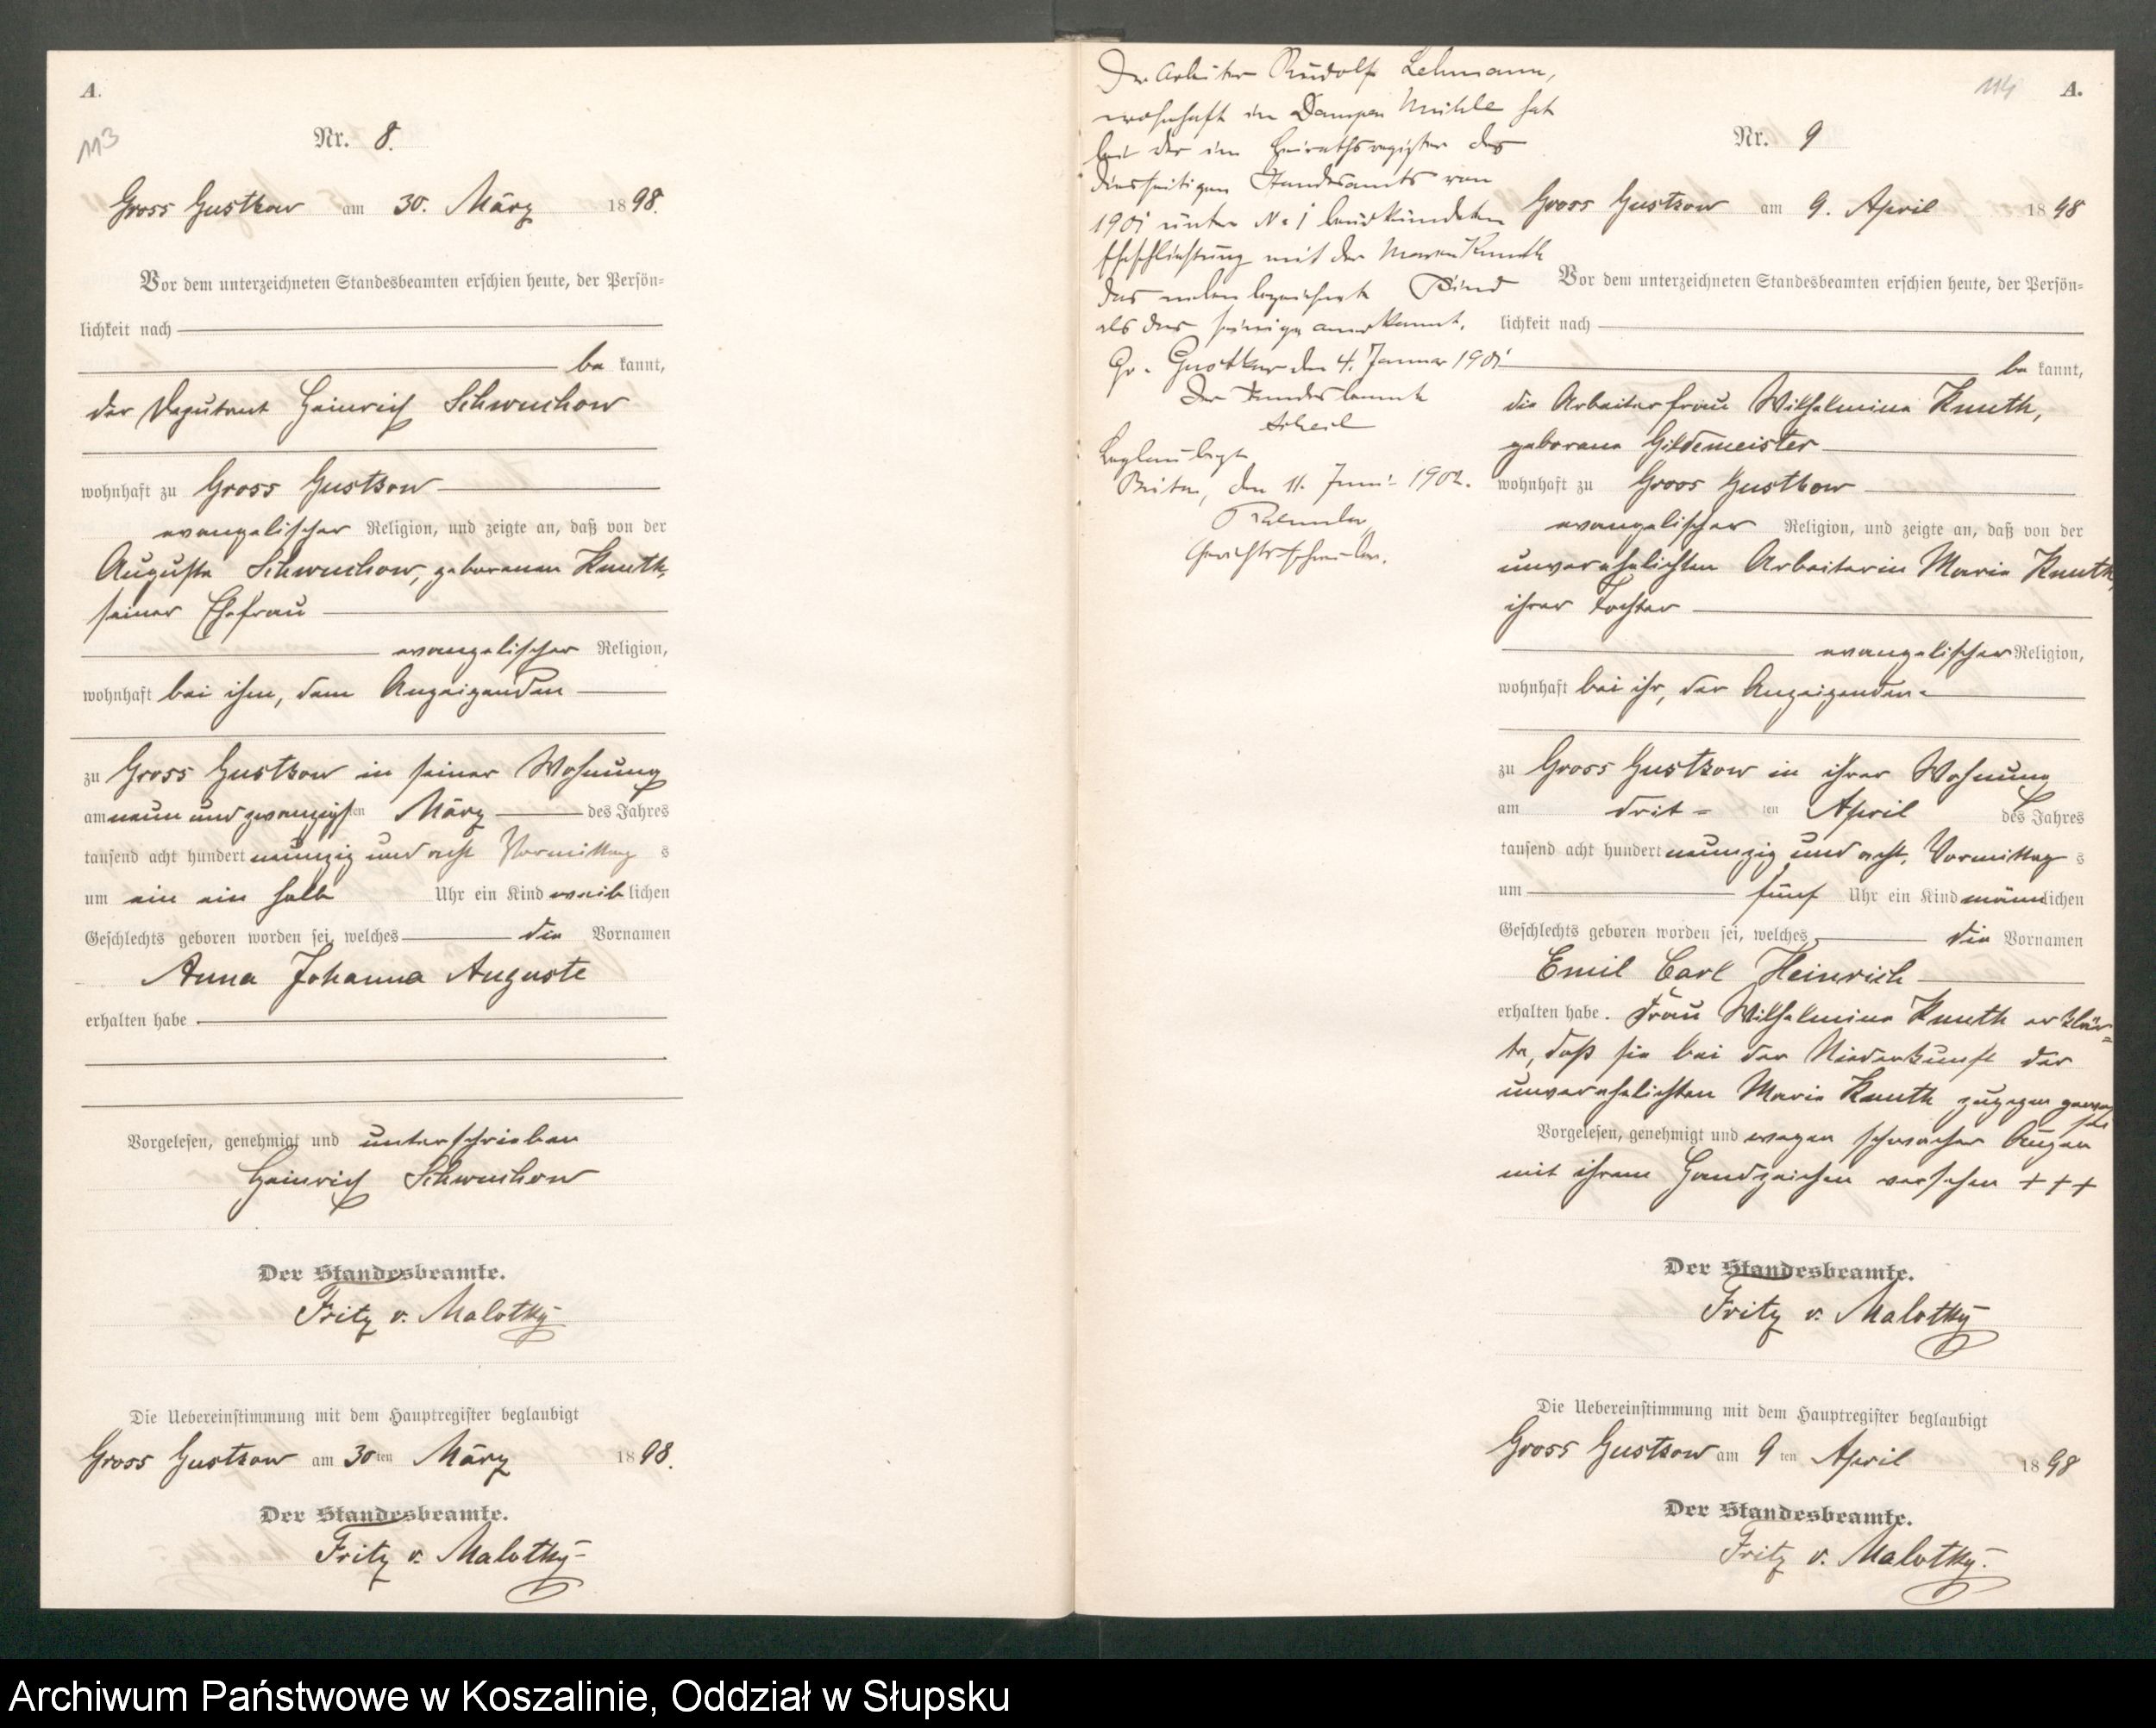 A.
113
Nr. 8.
Gross Gustkow am 30. März 1898.
Vor dem unterzeichneten Standesbeamten erschien heute, der Persön=
lichkeit nach
be kannt,
der Deputant Heinrich Schwuchow
wohnhaft zu Gross Gustkow
evangelischer Religion, und zeigte an, daß von der
Auguste Schwuchow, geborenen Knuth,
seiner Ehefrau
evangelischer Religion,
wohnhaft bei ihm, dem Anzeigenden
zu Gross Gustkow in seiner Wohnung
am neun und zwanzigsten März des Jahres
tausend acht hundert neunzig und acht Vormittag s
um ein ein halb Uhr ein Kind weiblichen
Geschlechts geboren worden sei, welches die Vornamen
Anna Johanna Auguste
erhalten habe.
Vorgelesen, genehmigt und unterschrieben
Heinrich Schwuchow
Der Standesbeamte.
Fritz v. Malotky
Die Uebereinstimmung mit dem Hauptregister beglaubigt
Gross Gustkow am 30ten März 1898.
Der Standesbeamte.
Fritz v. Malotky
Der Arbeiter Rudolf Lehmann,
wohnhaft in Mühle hat
bei der im Heirathsregister des
diesseitigen Standesamts von
1901 unter No 1 beurkundeten
Eheschließung mit der Marie Knuth
das neben bezeichnete Kind
als das seinige anerkannt.
Gr. Gustkow den 4. Januar 1901
Der Standesbeamte
Beglaubigt
den 11. Juni 1902.
Gerichtsschreiber.
114 A.
Nr. 9
Gross Gustkow am 9. April 1898
Vor dem unterzeichneten Standesbeamten erschien heute, der Persön=
lichkeit nach
be kannt,
die Arbeiterfrau Wilhelmine Knuth,
geborene Gildemeister
wohnhaft zu Gross Gustkow
evangelischer Religion, und zeigte an, daß von der
unverehelichten Arbeiterin Marie Knuth,
ihrer Tochter
evangelischer Religion,
wohnhaft bei ihr, der Anzeigenden
zu Gross Gustkow in ihrer Wohnung
am drit- ten April des Jahres
tausend acht hundert neunzig und acht, Vormittag s
um fünf Uhr ein Kind männlichen
Geschlechts geboren worden sei, welches die Vornamen
Emil Carl Heinrich
erhalten habe. Frau Wilhelmine Knuth erklär=
te, daß sie bei der Niederkunft der
unverehelichten Marie Knuth zugegen gewesen
sei.
Vorgelesen, genehmigt und wegen schwacher Augen
mit ihrem Handzeichen versehen + + +
Der Standesbeamte.
Fritz v. Malotky
Die Uebereinstimmung mit dem Hauptregister beglaubigt
Gross Gustkow am 9ten April 1898
Der Standesbeamte.
Fritz v. Malotky.
Archiwum Państwowe w Koszalinie, Oddział w Słupsku